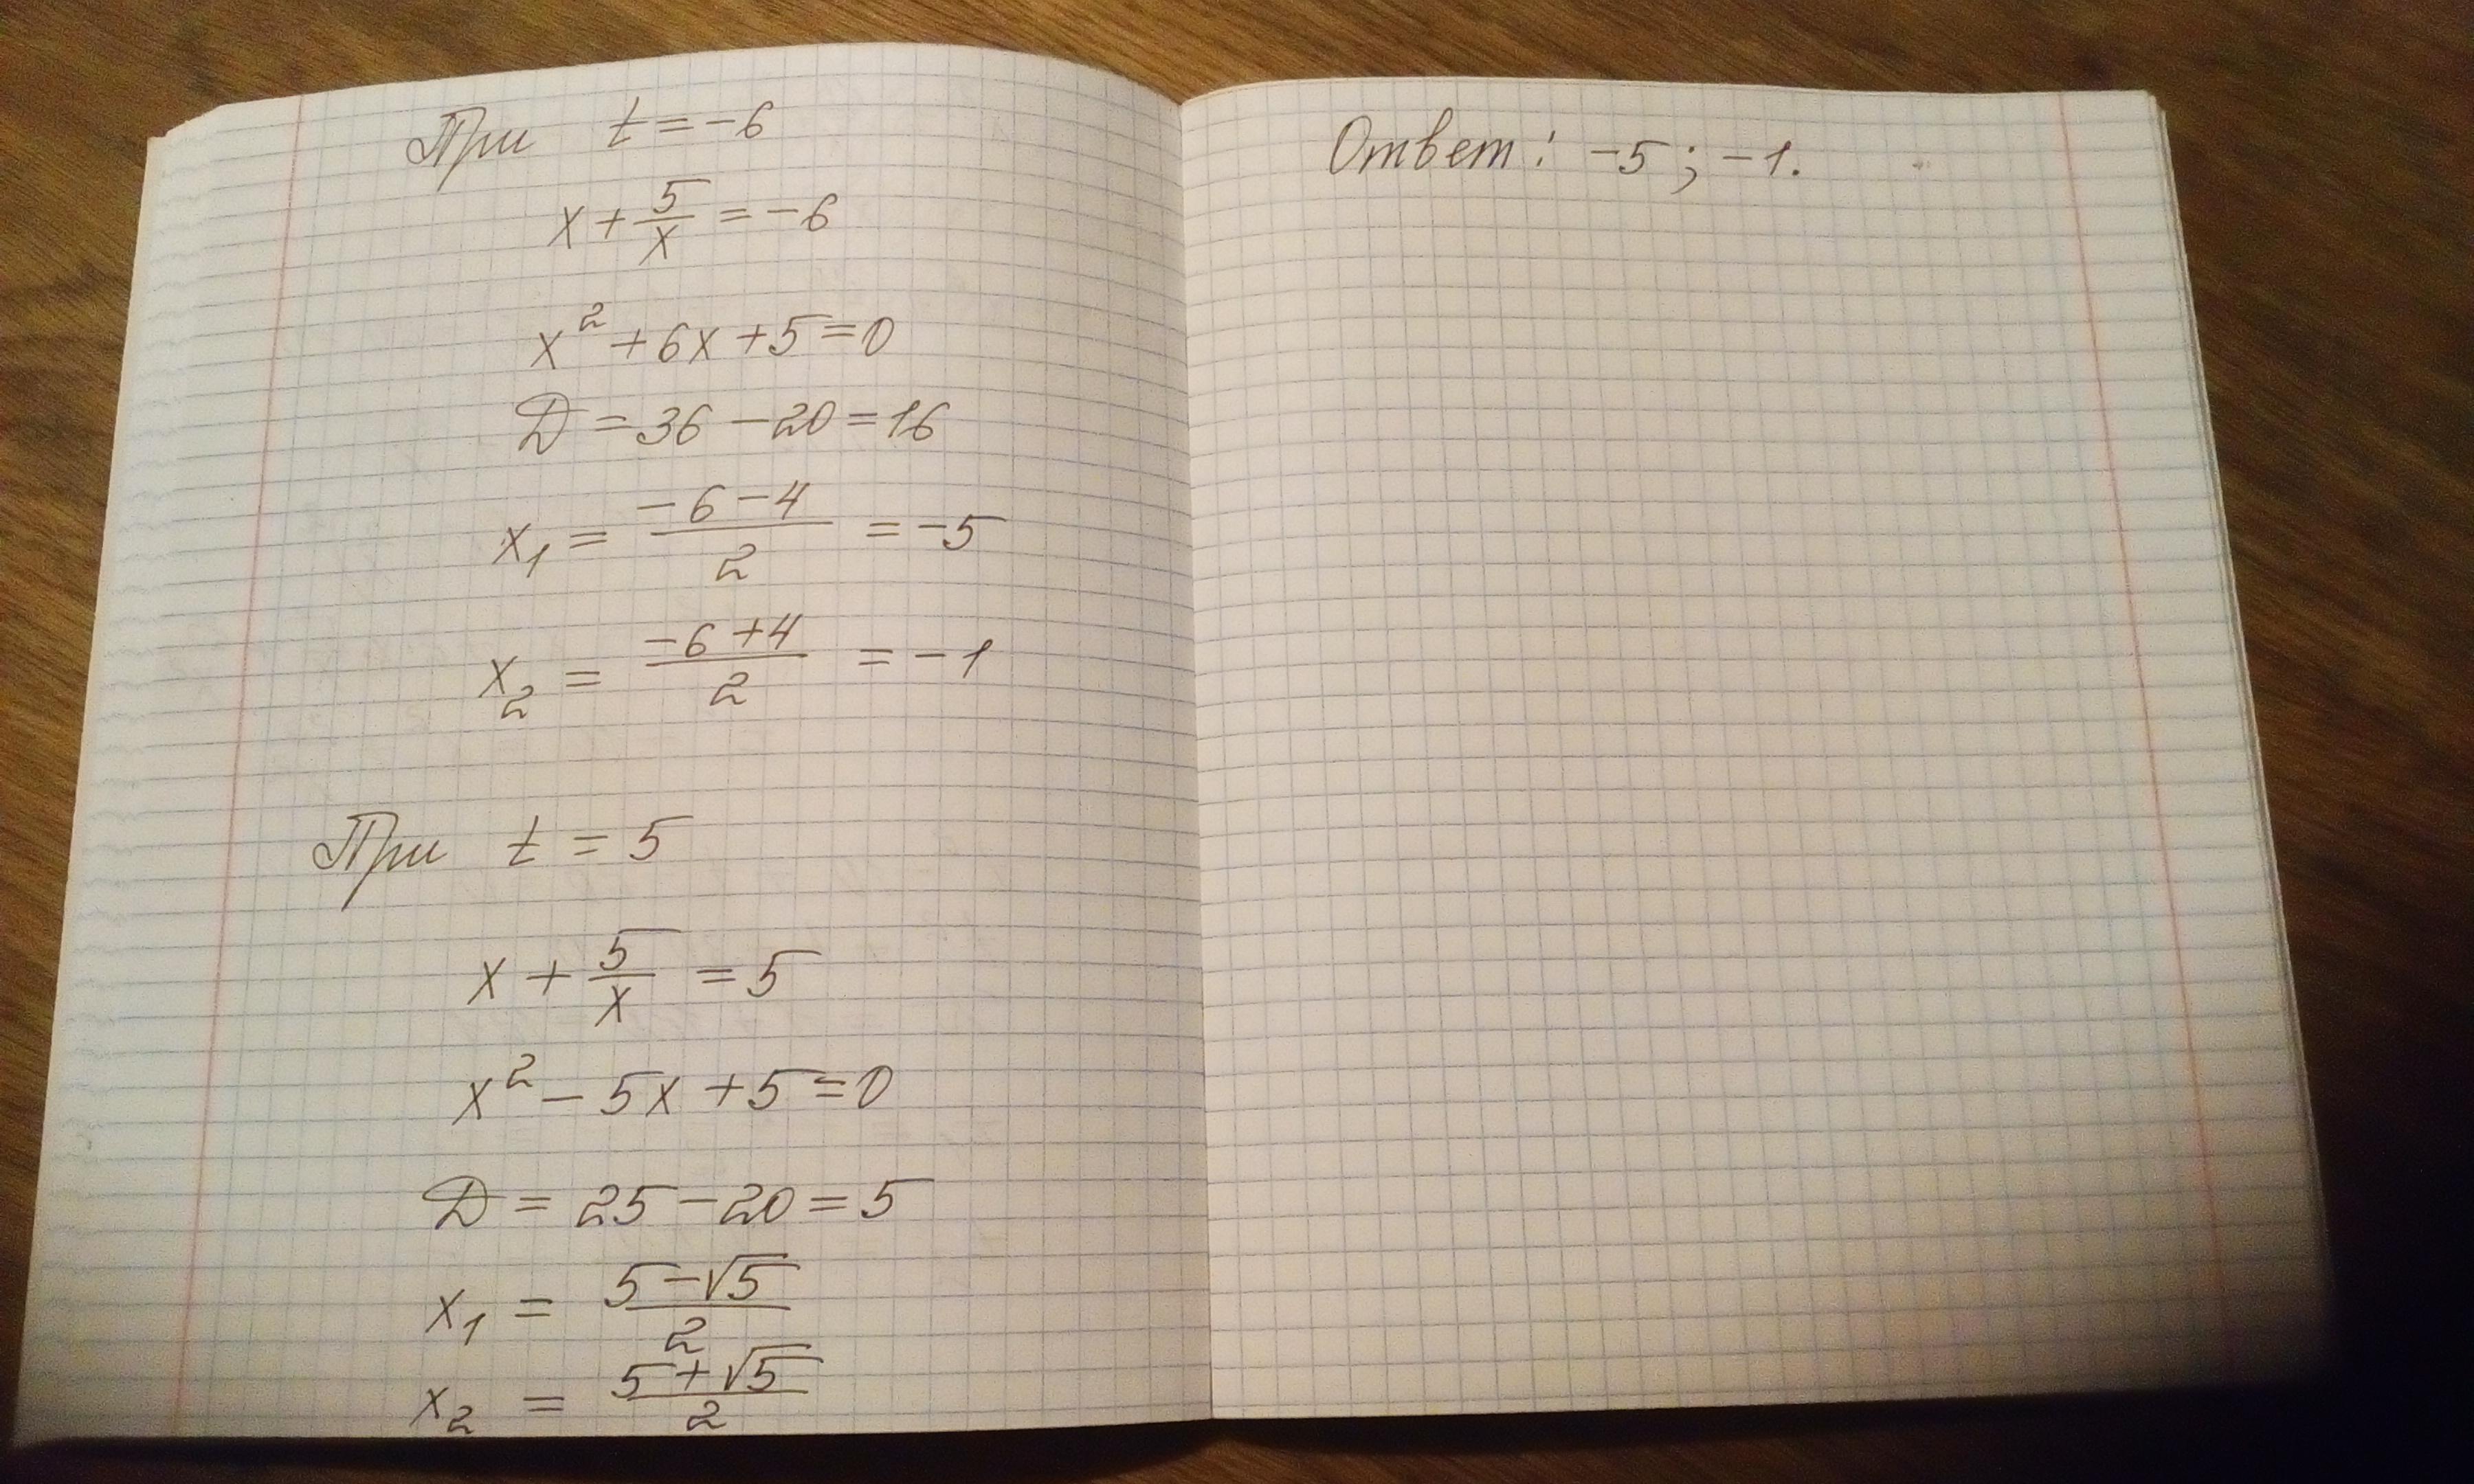 При t = -6
x + 5/x = -6
x² + 6x + 5 = 0
D = 36 - 20 = 16
x₁ = (-6 - 4)/2 = -5
x₂ = (-6 + 4)/2 = -1
При t = 5
x + 5/x = 5
x² - 5x + 5 = 0
D = 25 - 20 = 5
x₁ = (5 - √5)/2
x₂ = (5 + √5)/2
Ответ: -5; -1.